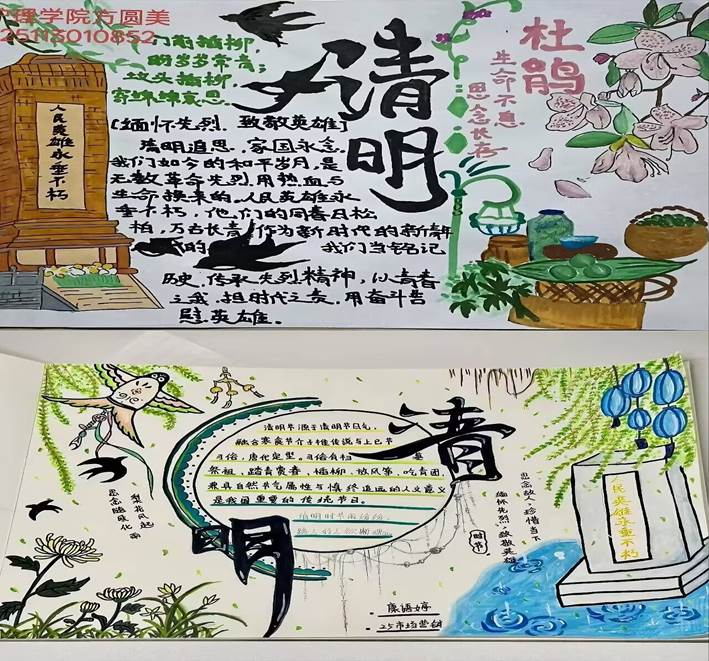 理学院方圆美
25115010852
门前插柳，
明岁岁常青；
坟头插柳，
寄绵绵哀思。
清明
杜鹃
生命不息
思念长存
人民英雄永垂不朽
[缅怀先烈，致敬英雄]
清明追思，家国永念，
我们如今的和平岁月，是
无数革命先烈用热血与
生命换来的。人民英雄永
垂不朽，他们的同春日松
柏，万古长青，作为新时代的新青年
的 我们当铭记
历史，传承先烈精神，以青春
之我，担时代之责，用奋斗告
慰英雄。
清明
清明节源于清明节日气，
融合寒食节介子推传说与上巳节
习俗，唐代定型。习俗有扫
祭祖，踏青赏春，插柳，放风筝，吃青团，
兼具自然节气属性与慎终追远的人文意义
是我国重要的传统节日。
清明时节雨纷纷，
路上行人欲断魂
梨花风起
思念随雁化南
时节
思念故人，珍惜当下
缅怀先烈，致敬英雄
人民英雄永垂不朽
25市场营销